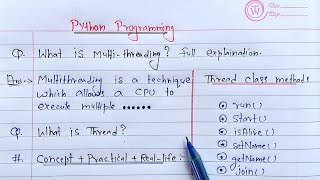 Python Programming
Q. What is Multi-threading? full explaination.
Ans→ Multithreading is a technique
which allows a CPU to
execute multiple ......
Q. What is Thread?
#. Concept + Practical + Real-life :
Thread class methods
run()
start()
isAlive()
setName()
getName()
join()